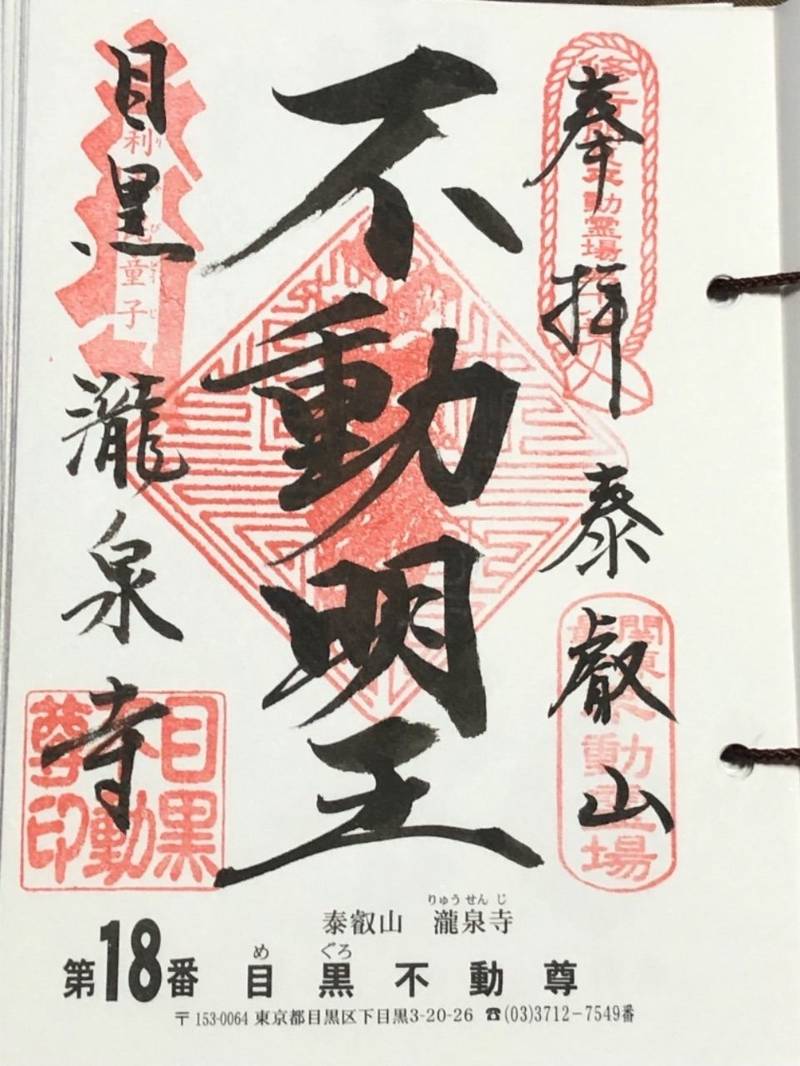 奉拝 泰叡山
不動明王
目黒 瀧泉寺
動霊場
関東
動霊場
童子
目黒不動尊印
りゅうせんじ
泰叡山 瀧泉寺
め ぐろ
第18番 目黒不動尊
〒153-0064 東京都目黒区下目黒3-20-26 ☎(03)3712-7549番